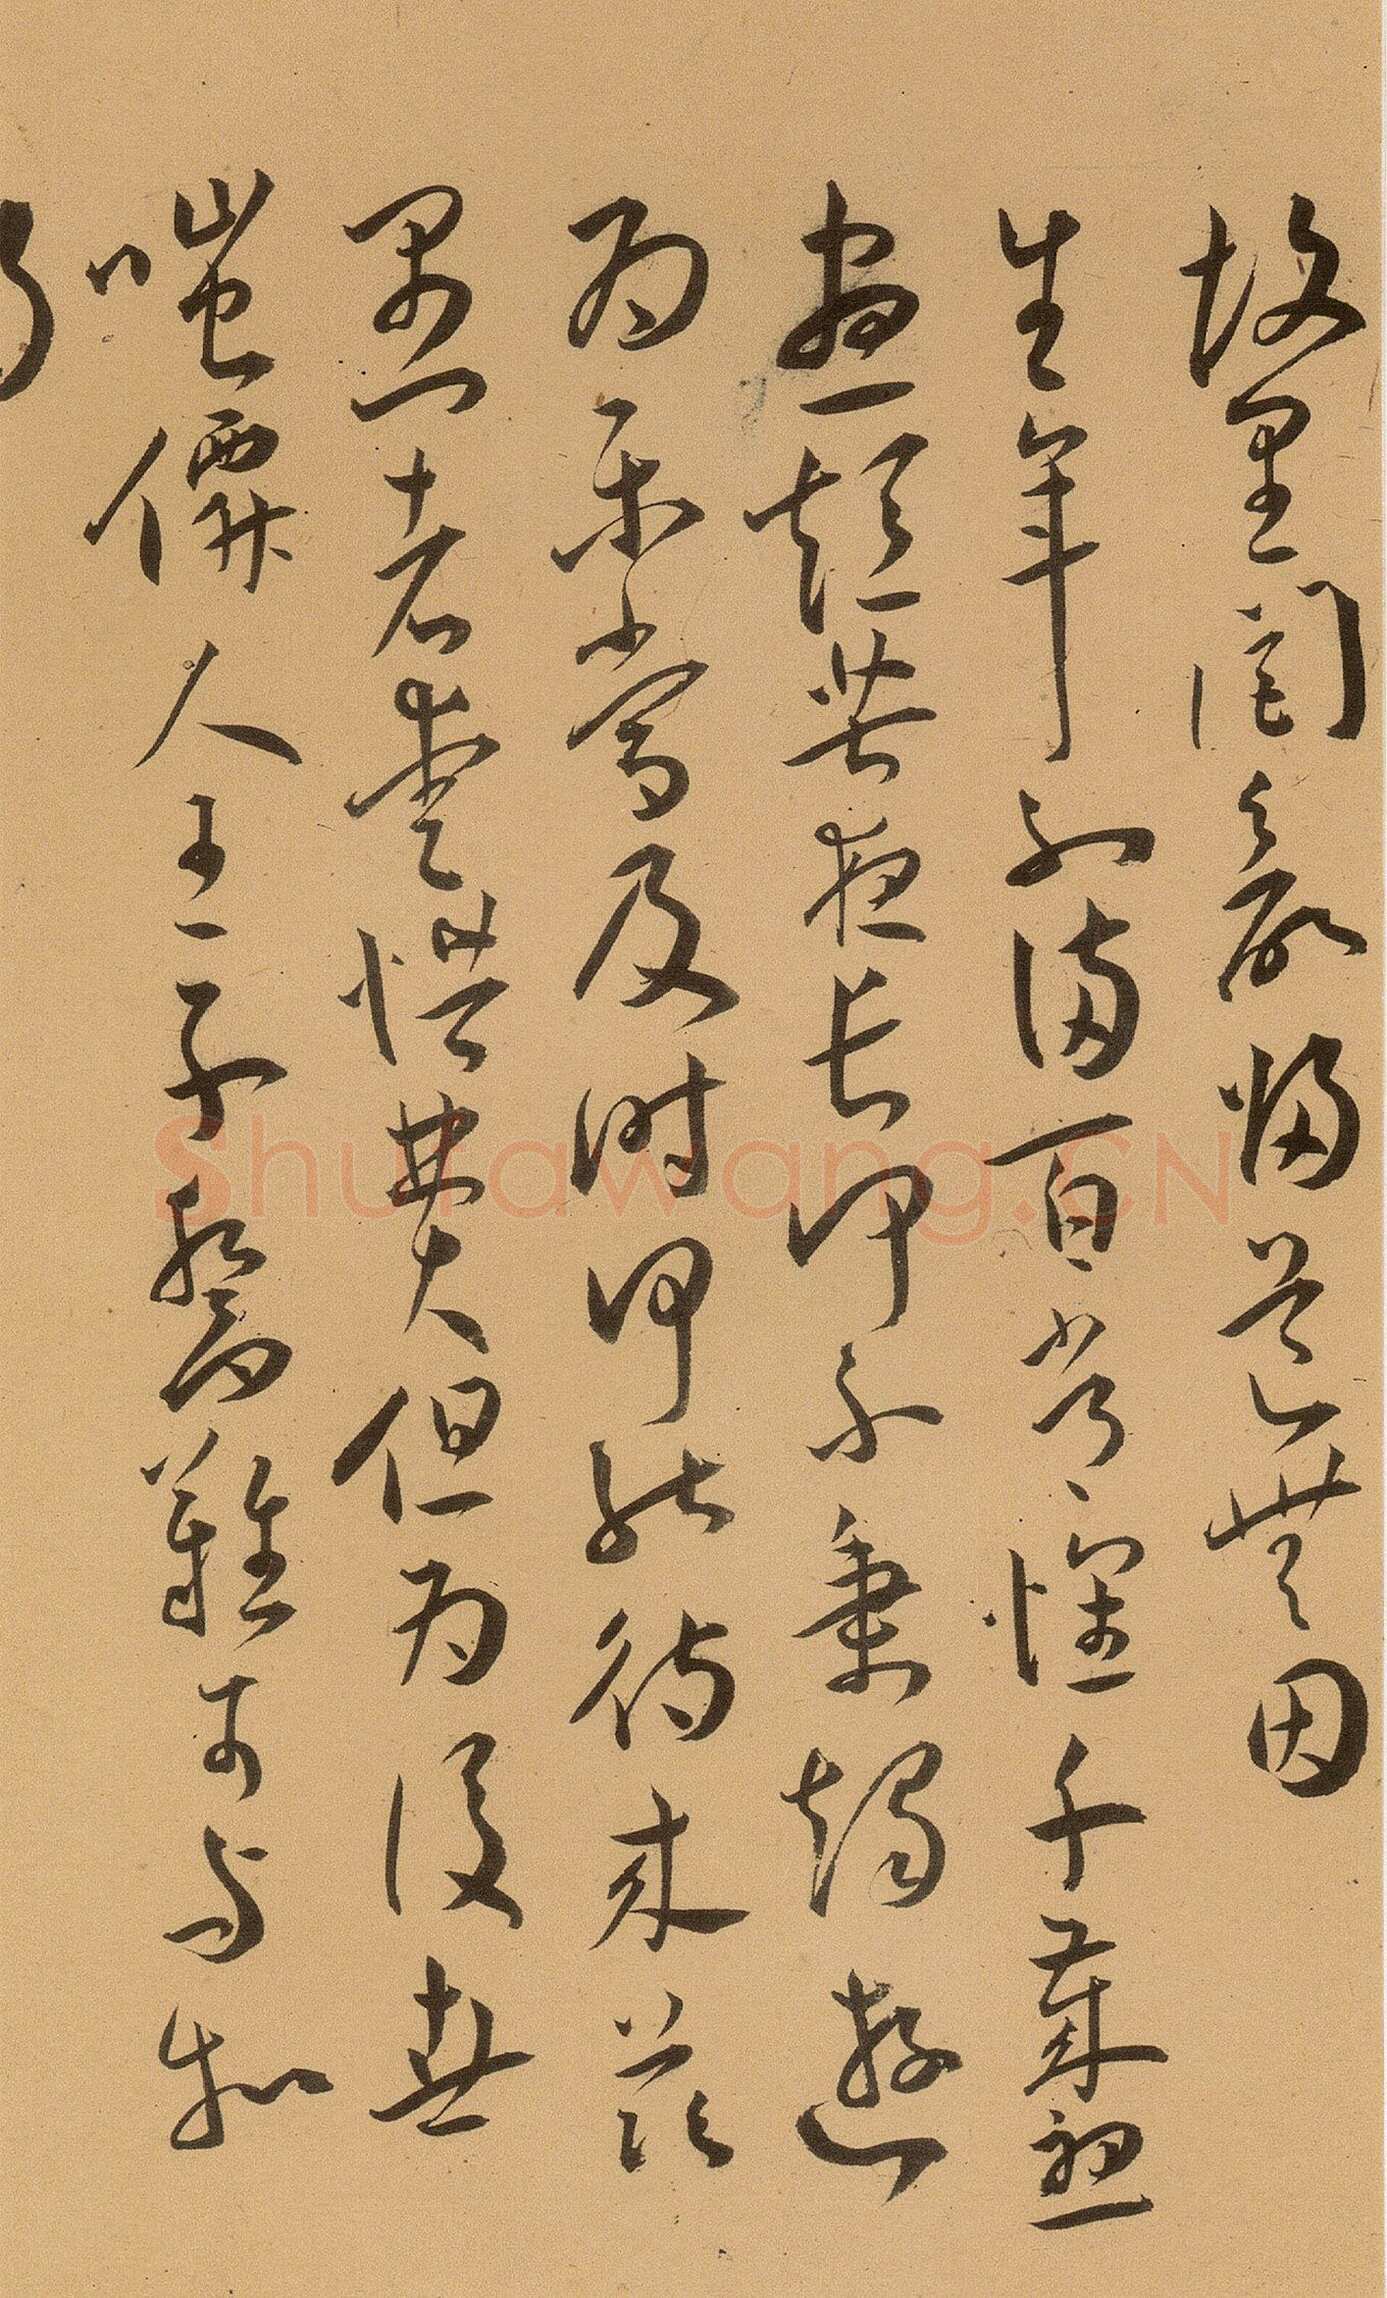 故里閭欲歸道無因
生年不滿百常懷千歲憂
晝短苦夜長何不秉燭遊
為樂當及時何能待來茲
愚者愛惜費但為後世
嗤僊人王子喬難可與
Shufawang.CN